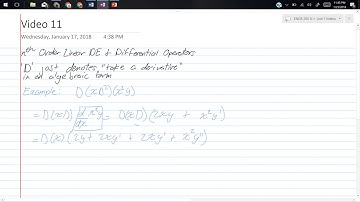 Video 11
Wednesday, January 17, 2018 4:38 PM
nth Order Linear DE & Differential Operators
'D' just denotes "take a derivative"
in an algebraic form
Example: D(xD²)(x²y)
= D(xD) [d x²y / dx] = D(xD)(2xy + x²y')
= D(x)(2y + 2xy' + 2xy' + x²y'')